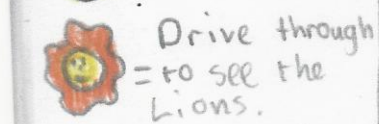 Drive through
= to see the
Lions.